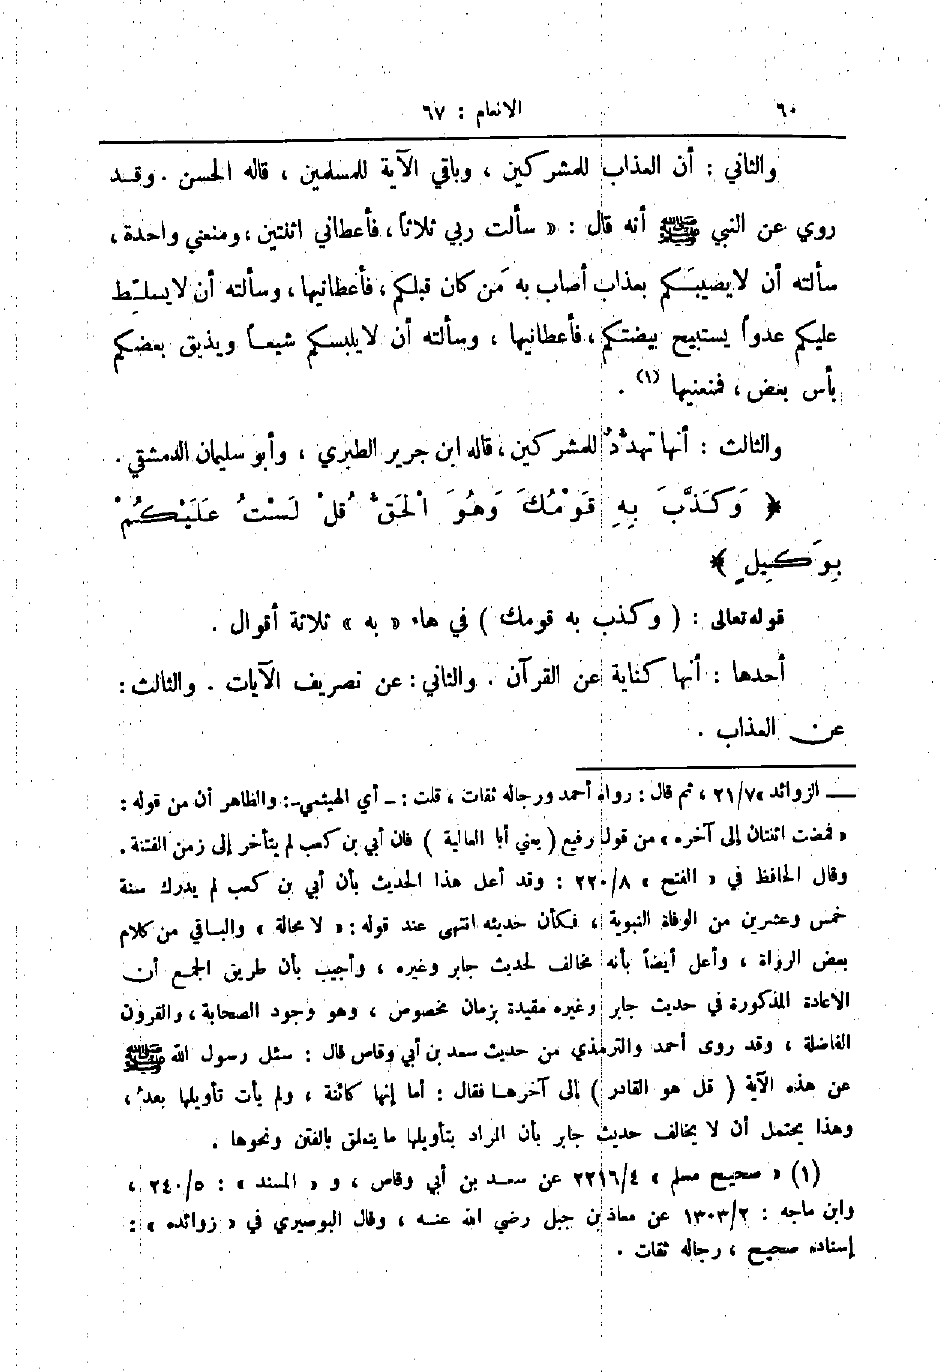 ٦٠
الانعام : ٦٧
والثاني : أن العذاب للمشركين ، وباقي الآية للمسلمين ، قاله الحسن . وقد
روي عن النبي ﷺ أنه قال : « سألت ربي ثلاثاً ، فأعطاني اثنتين ، ومنعني واحدة ،
سألته أن لا يصيبَكم بعذاب أصاب به مَن كان قبلكم ، فأعطانيها ، وسألته أن لا يسلِّط
عليكم عدواً يستبيح بيضتكم ، فأعطانيها ، وسألته أن لا يلبسكم شيعاً ويذيق بعضكم
بأس بعض ، فمنعنيها (١) .
والثالث : أنها تهدُّدٌ للمشركين ، قاله ابن جرير الطبري ، وأبو سليمان الدمشقي .
﴿ وَكَذَّبَ بِهِ قَوْمُكَ وَهُوَ الْحَقُّ قُلْ لَسْتُ عَلَيْكُمْ
بِوَكِيلٍ ﴾
قوله تعالى : ( وكذب به قومك ) في هاء « به » ثلاثة أقوال .
أحدها : أنها كناية عن القرآن . والثاني : عن تصريف الآيات . والثالث :
عن العذاب .
ــ الزوائد » ٢١/٧ ، ثم قال : رواه أحمد ورجاله ثقات ، قلت : ـ أي الهيثمي ـ : والظاهر أن من قوله :
« فمضت اثنتان إلى آخره » من قول رفيع ( يعني أبا العالية ) فان أبي بن كعب لم يتأخر إلى زمن الفتنة .
وقال الحافظ في « الفتح » ٢٢٠/٨ : وقد أعل هذا الحديث بأن أبي بن كعب لم يدرك سنة
خمس وعشرين من الوفاة النبوية ، فكأن حديثه انتهى عند قوله : « لا محالة » والباقي من كلام
بعض الرواة ، وأعل أيضاً بأنه مخالف لحديث جابر وغيره ، وأجيب بأن طريق الجمع أن
الاعادة المذكورة في حديث جابر وغيره مقيدة بزمان مخصوص ، وهو وجود الصحابة ، والقرون
الفاضلة ، وقد روى أحمد والترمذي من حديث سعد بن أبي وقاص قال : سئل رسول الله ﷺ
عن هذه الآية ( قل هو القادر ) إلى آخرها فقال : أما إنها كائنة ، ولم يأت تأويلها بعدُ ،
وهذا يحتمل أن لا يخالف حديث جابر بأن المراد بتأويلها ما يتعلق بالفتن ونحوها .
(١) « صحيح مسلم » ٢٢١٦/٤ عن سعد بن أبي وقاص ، و « المسند » : ٢٤٠/٥ ،
وابن ماجه : ١٣٠٣/٢ عن معاذ بن جبل رضي الله عنه ، وقال البوصيري في « زوائده » :
إسناده صحيح ، رجاله ثقات .